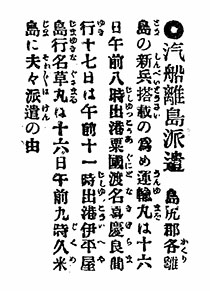 ◉汽船離島派遣 島尻郡各離
島の新兵搭載の爲め運輸丸は十六
日午前八時出港粟國渡名喜慶良間
行十七日は午前十一時出港伊平屋
島行名草丸は十六日午前九時久米
島に夫々派遣の由